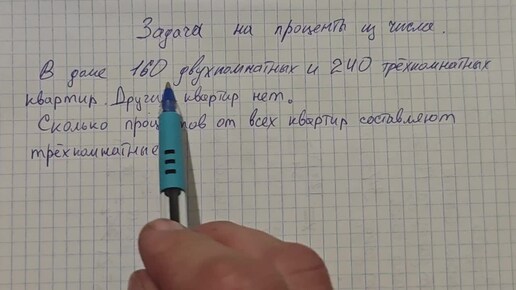 Задача на проценты из числа.
В доме 160 двухкомнатных и 240 трёхкомнатных
квартир. Других квартир нет.
Сколько процентов от всех квартир составляют
трёхкомнатные